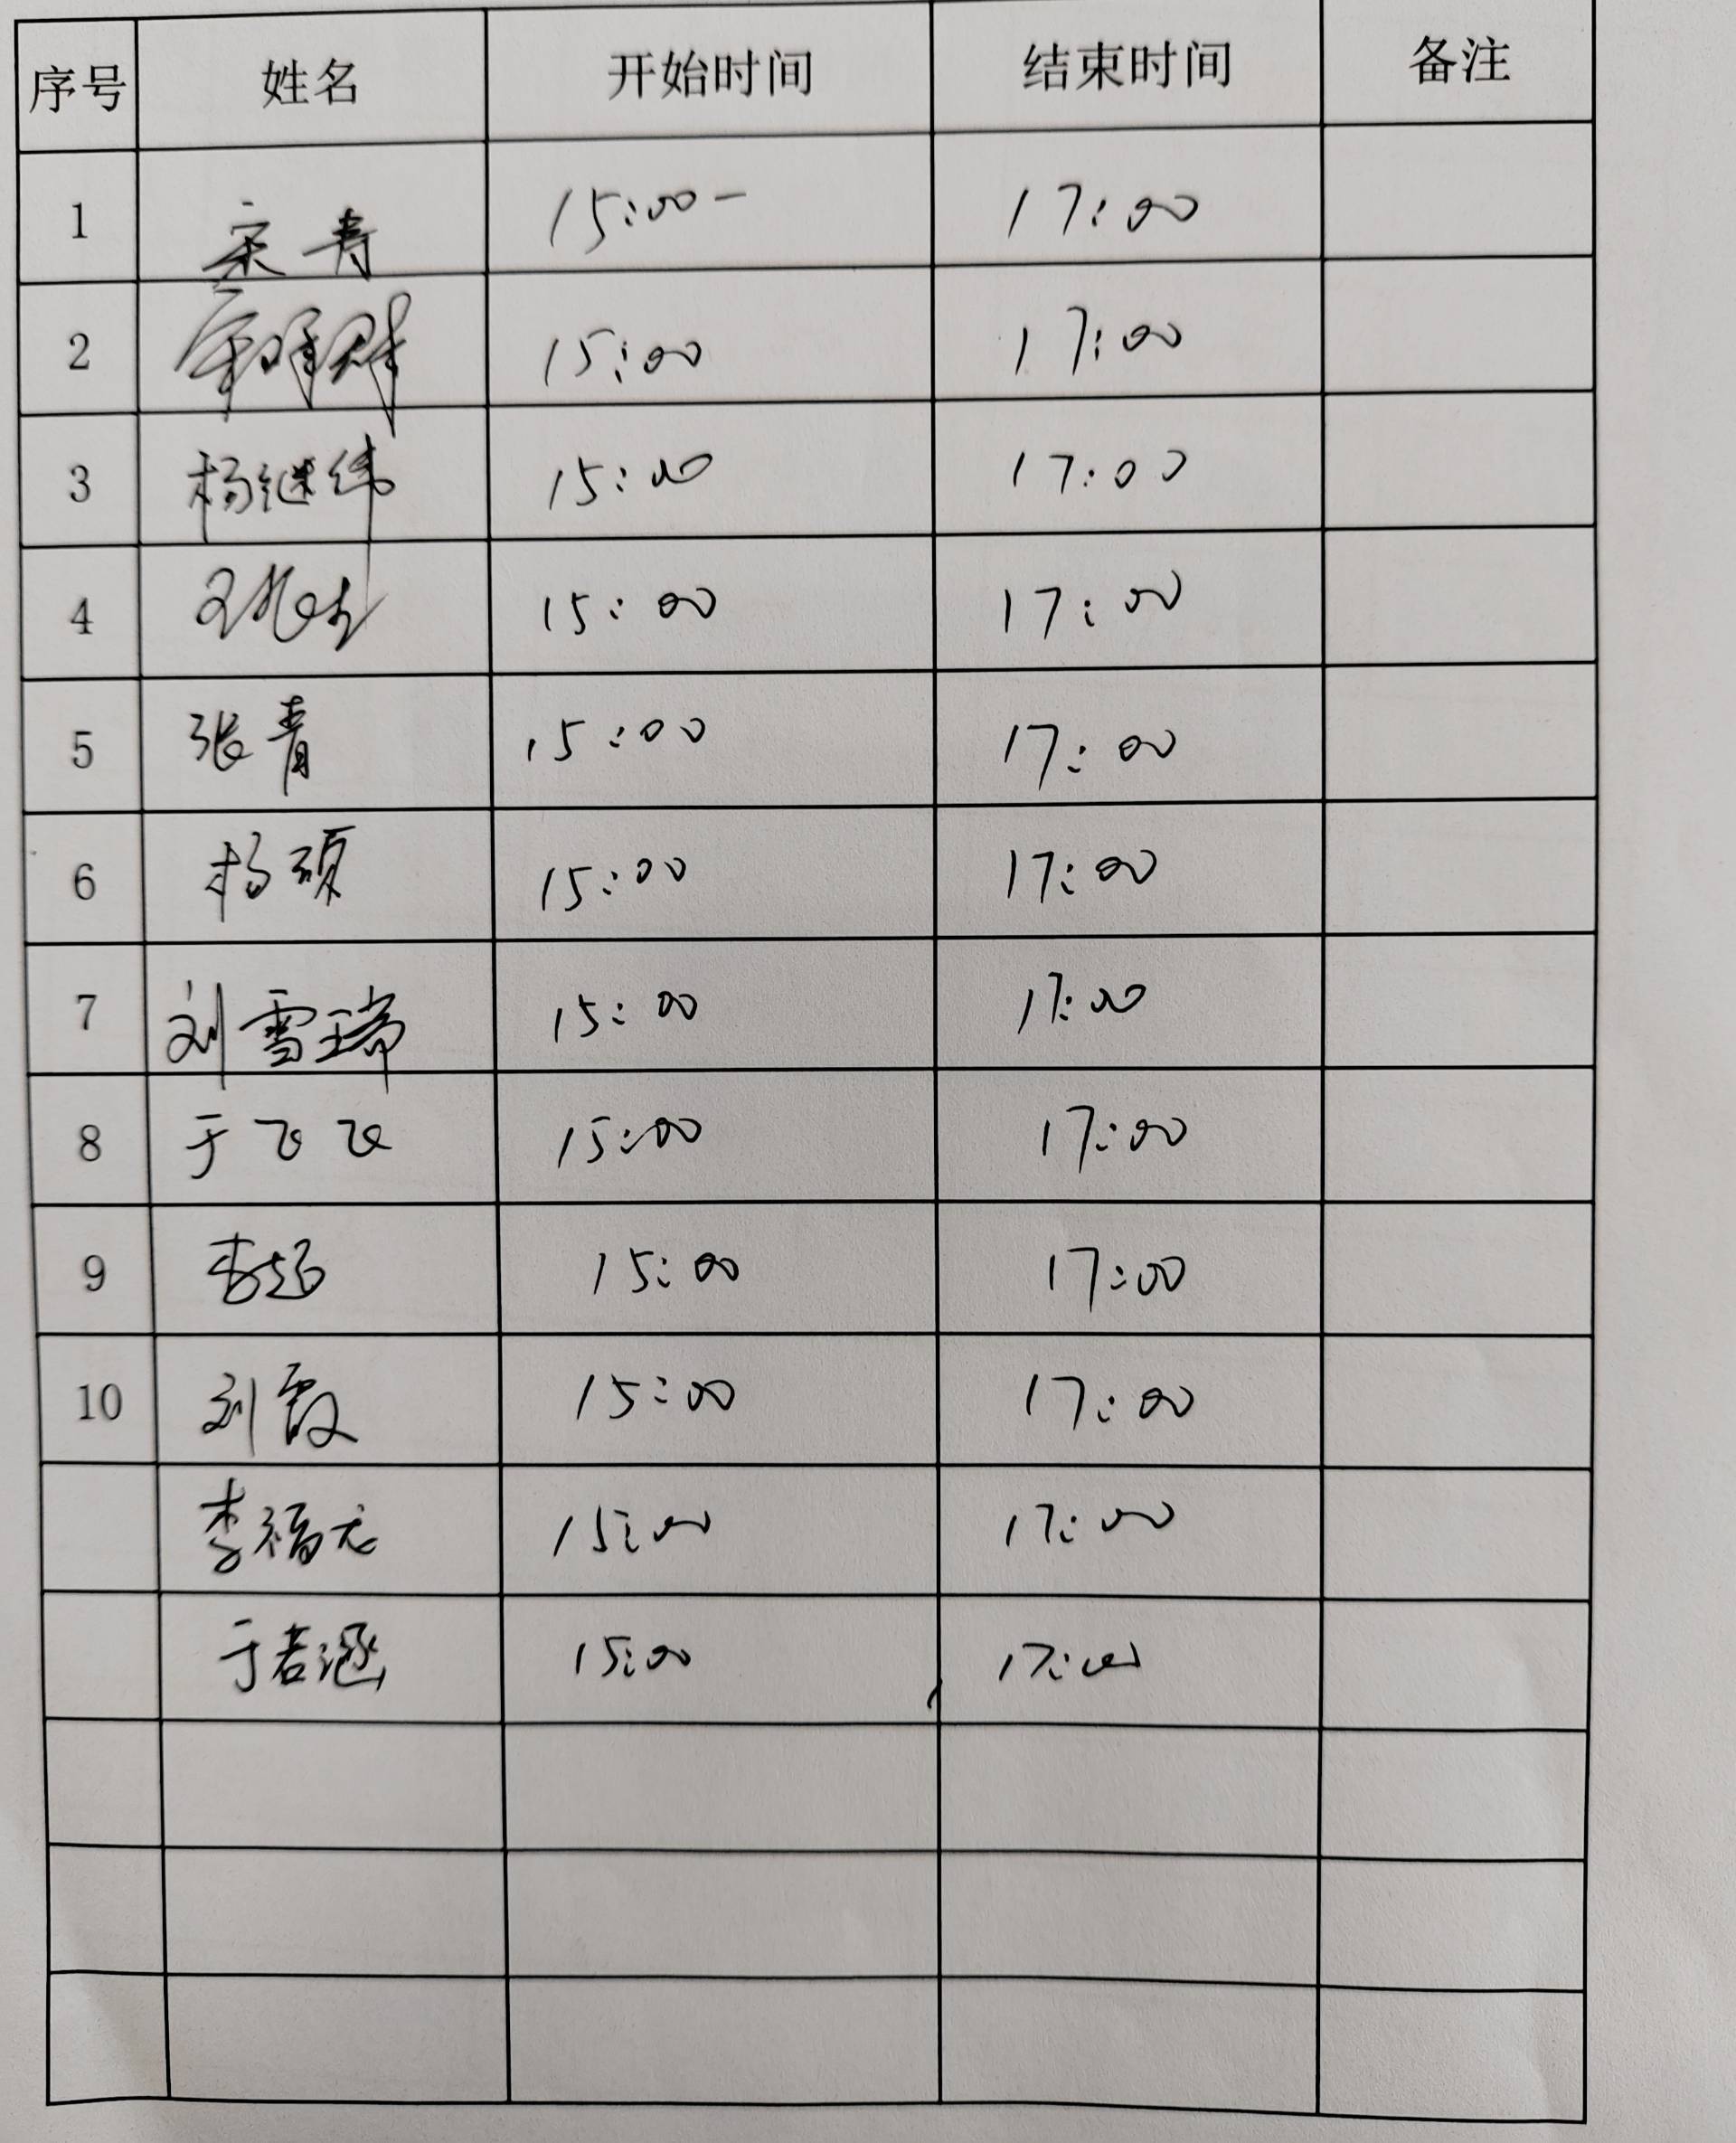 序号 姓名 开始时间 结束时间 备注
1 宋青 15:00- 17:00
2 15:00 17:00
3 杨继纬 15:00 17:00
4 15:00 17:00
5 张青 15:00 17:00
6 杨硕 15:00 17:00
7 刘雪瑞 15:00 17:00
8 于飞飞 15:00 17:00
9 李超 15:00 17:00
10 刘霞 15:00 17:00
李福龙 15:00 17:00
于若涵 15:00 17:00